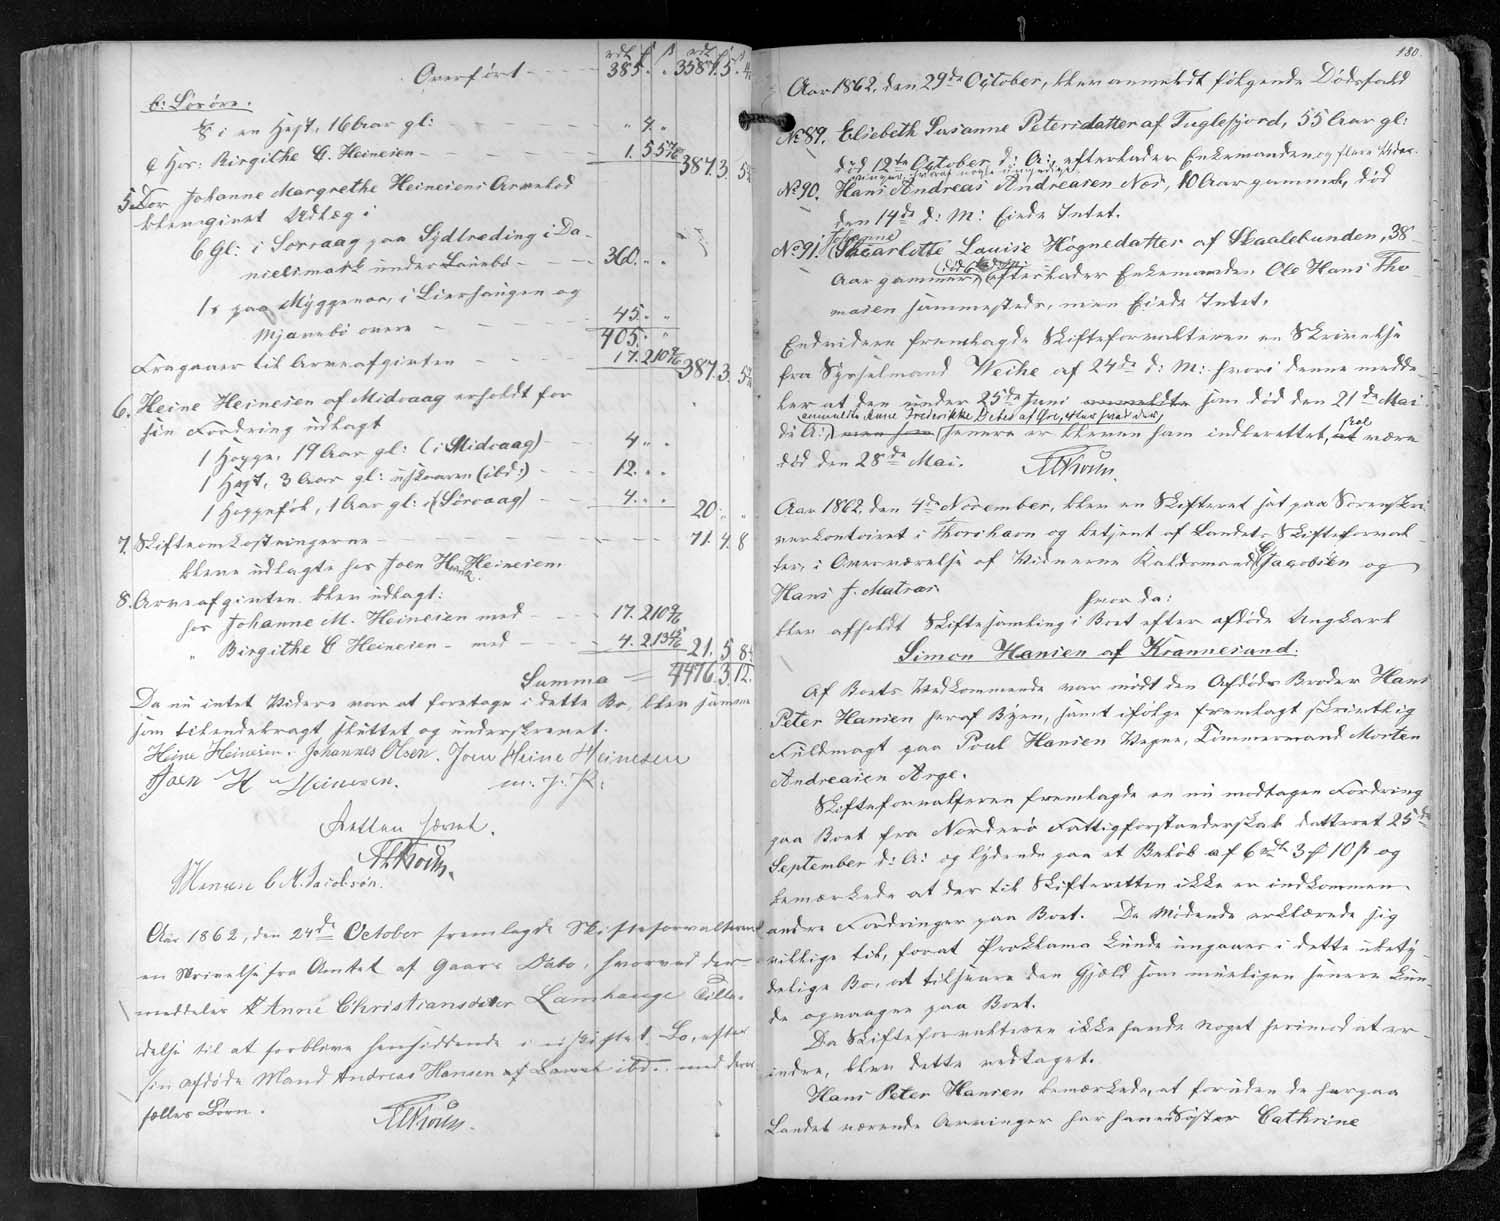 rdl ß rdl ß
Overført - - - 385. " . 3587. 5. 4
b: Løsøre.
1/8 i en Hest, 16 Aar gl: - - - " 4. "
e Hos: Birgithe C. Heinesen - - - 1. 5
387. 3. 5
5. For Johanne Margrethe Heinesens Arvelod
blev givet Udlæg i
6 Gl: i Sørvaag paa Sydtreding i Da-
nielsmark under Lønebø - - 360. " "
1 s paa Myggenæs, i Lierhaugen og
Mjanebø overe - - - - 45. " "
405. " "
Fragaaer til Arveafgiften - - - 17. 2 10
387. 3. 5
6. Heine Heinesen af Midvaag erholdt for
sin Fordring udlagt
1 Hoppe, 19 Aar gl: (i Midvaag) - - 4 " "
1 Hest, 3 Aar gl: uskaaren (ibd:) - - 12. " "
1 Hoppeføl, 1 Aar gl: (Sørvaag) - - 4. " "
20 " "
7. Skifteomkostningerne - - - - - 71. 4. 8
bleve udlagte hos Joen Heine Heinesen
8. Arveafgiften blev udlagt:
hos Johanne M. Heinesen med - - 17. 2 10
" Birgithe C Heinesen - med - - 4. 2 13
21. 5. 8
Summa = 4476. 3. 12.
Da nu intet Videre var at foretage i dette Bo, blev samme
som tilendebragt sluttet og underskrevet.
Heine Heinesen. Johannes Olsen. Joen Heine Heinesen
Joen H Heinesen. m. f. P.
Retten hævet.
HCMüller.
C. A. Jacobsen.
Aar 1862, den 24de October fremlagde Skifteforvalteren
en Skrivelse fra Amtet af Gaars Dato, hvorved der
meddeles Anne Christiansdatter Lamhauge Tilla-
delse til at forblive hensiddende i uskiftet Bo, efter
sin afdøde Mand Andreas Hansen af Lamb ibd. med deres
fælles Børn.
180.
Aar 1862, den 29de October, blev anmeldt følgende Dødsfald
No 89. Elsebeth Susanne Petersdatter af Fuglefjord, 55 Aar gl:
død 12te October d: A:, efterlader Enkemanden og flere Udar-
vinger, hvoraf nogle umyndige.
No 90. Hans Andreas Andreasen Næs, 10 Aar gammel, død
den 14de d: M: Eiede Intet.
No 91. Johanne Charlotte Louise Høgnedatter af Skaalebunden, 38
Aar gammel, efterlader Enkemanden Ole Hans Tho-
masen sammesteds, men Eiede Intet.
Endvidere fremlagde Skifteforvalteren en Skrivelse
fra Sysselmand Weihe af 24de d: M: hvori denne medde-
ler at den under 25de Juni anmeldte som død den 21de Mai
anmeldte Anne Frederikke
d: A:, men som senere er bleven ham indberettet, skal være
død den 28de Mai.
Aar 1862, den 4de November, blev en Skifteret sat paa Sorenskri-
verkontoiret i Thorshavn og betjent af Landets Skifteforval-
ter, i Overværelse af Vidnerne Raadsmand Jacobsen og
Hans J. Matras.
hvor da:
blev afholdt Skiftesamling i Boet efter afdøde Ungkarl
Simon Hansen af Krannesund.
Af Boets Vedkommende var mødt den Afdødes Broder Hans
Peter Hansen her af Byen, samt ifølge fremlagt skriftlig
Fuldmagt paa Poul Hansen Vegne, Tømmermand Morten
Andreasen Arge.
Skifteforvalteren fremlagde en nu modtagen Fordring
paa Boet fra Norderø Fattigforstanderskab datteret 25de
September d: A: og lydende paa et Beløb af 6 rdl 3 10 ß og
bemærkede at der til Skifteretten ikke er indkommen
andre Fordringer paa Boet. De Mødende erklærede sig
villige til, forat Proklama kunde undgaaes i dette ubety-
delige Bo, at tilsvare den Gjæld som muligen senere kun-
de opvaages paa Boet.
Da Skifteforvalteren ikke havde noget herimod at er-
indre, blev dette vedtaget.
Hans Peter Hansen bemærkede, at foruden de her paa
Landet værende Arvinger har hans Søster Cathrine